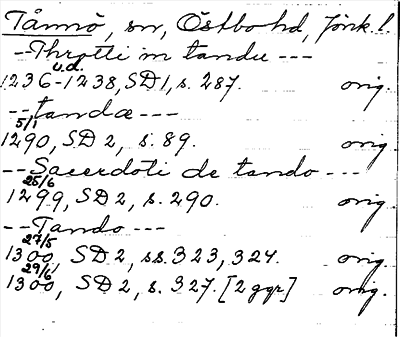 Tånnö, sn, Östbo hd, Jönk. l.
-- Throtti in tandu ---
u.d.
1236-1238, SD 1, s. 287. orig.
-- tandæ ---
5/1
1290, SD 2, s. 89. orig.
-- Sacerdoti de tando ---
25/6
1299, SD 2, s. 290. orig.
-- Tando ---
27/5
1300, SD 2, ss. 323, 324. orig.
29/6
1300, SD 2, s. 327. [2 ggr] orig.